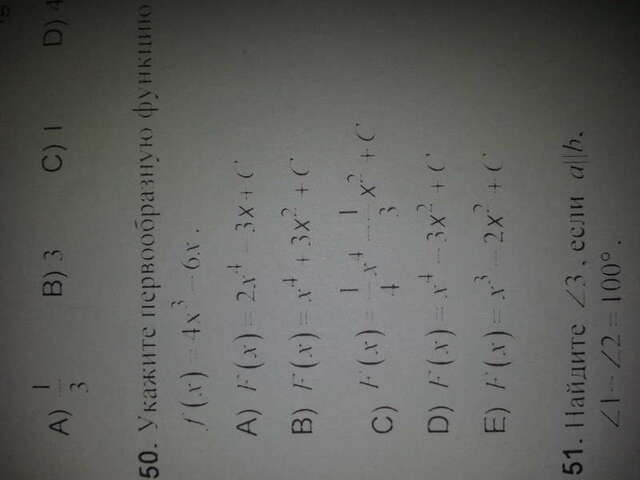 A) 1/3 B) 3 C) 1 D) 4
50. Укажите первообразную функцию
f(x) = 4x³ − 6x.
A) F(x) = 2x⁴ − 3x + C
B) F(x) = x⁴ + 3x² + C
C) F(x) = 1/4 x⁴ − 1/3 x² + C
D) F(x) = x⁴ − 3x² + C
E) F(x) = x³ − 2x² + C
51. Найдите ∠3, если a||b.
∠1 − ∠2 = 100°.